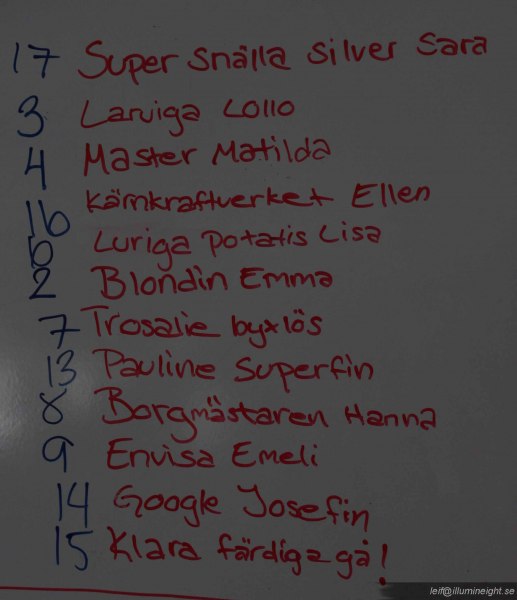 17 Super snälla silver Sara
3 Larviga Lollo
4 Master Matilda
16 Kärnkraftverket Ellen
10 Luriga potatis Lisa
2 Blondin Emma
7 Trosalie byxlös
13 Pauline Superfin
8 Borgmästaren Hanna
9 Envisa Emeli
14 Google Josefin
15 Klara färdiga gå!
leif@illumineight.se